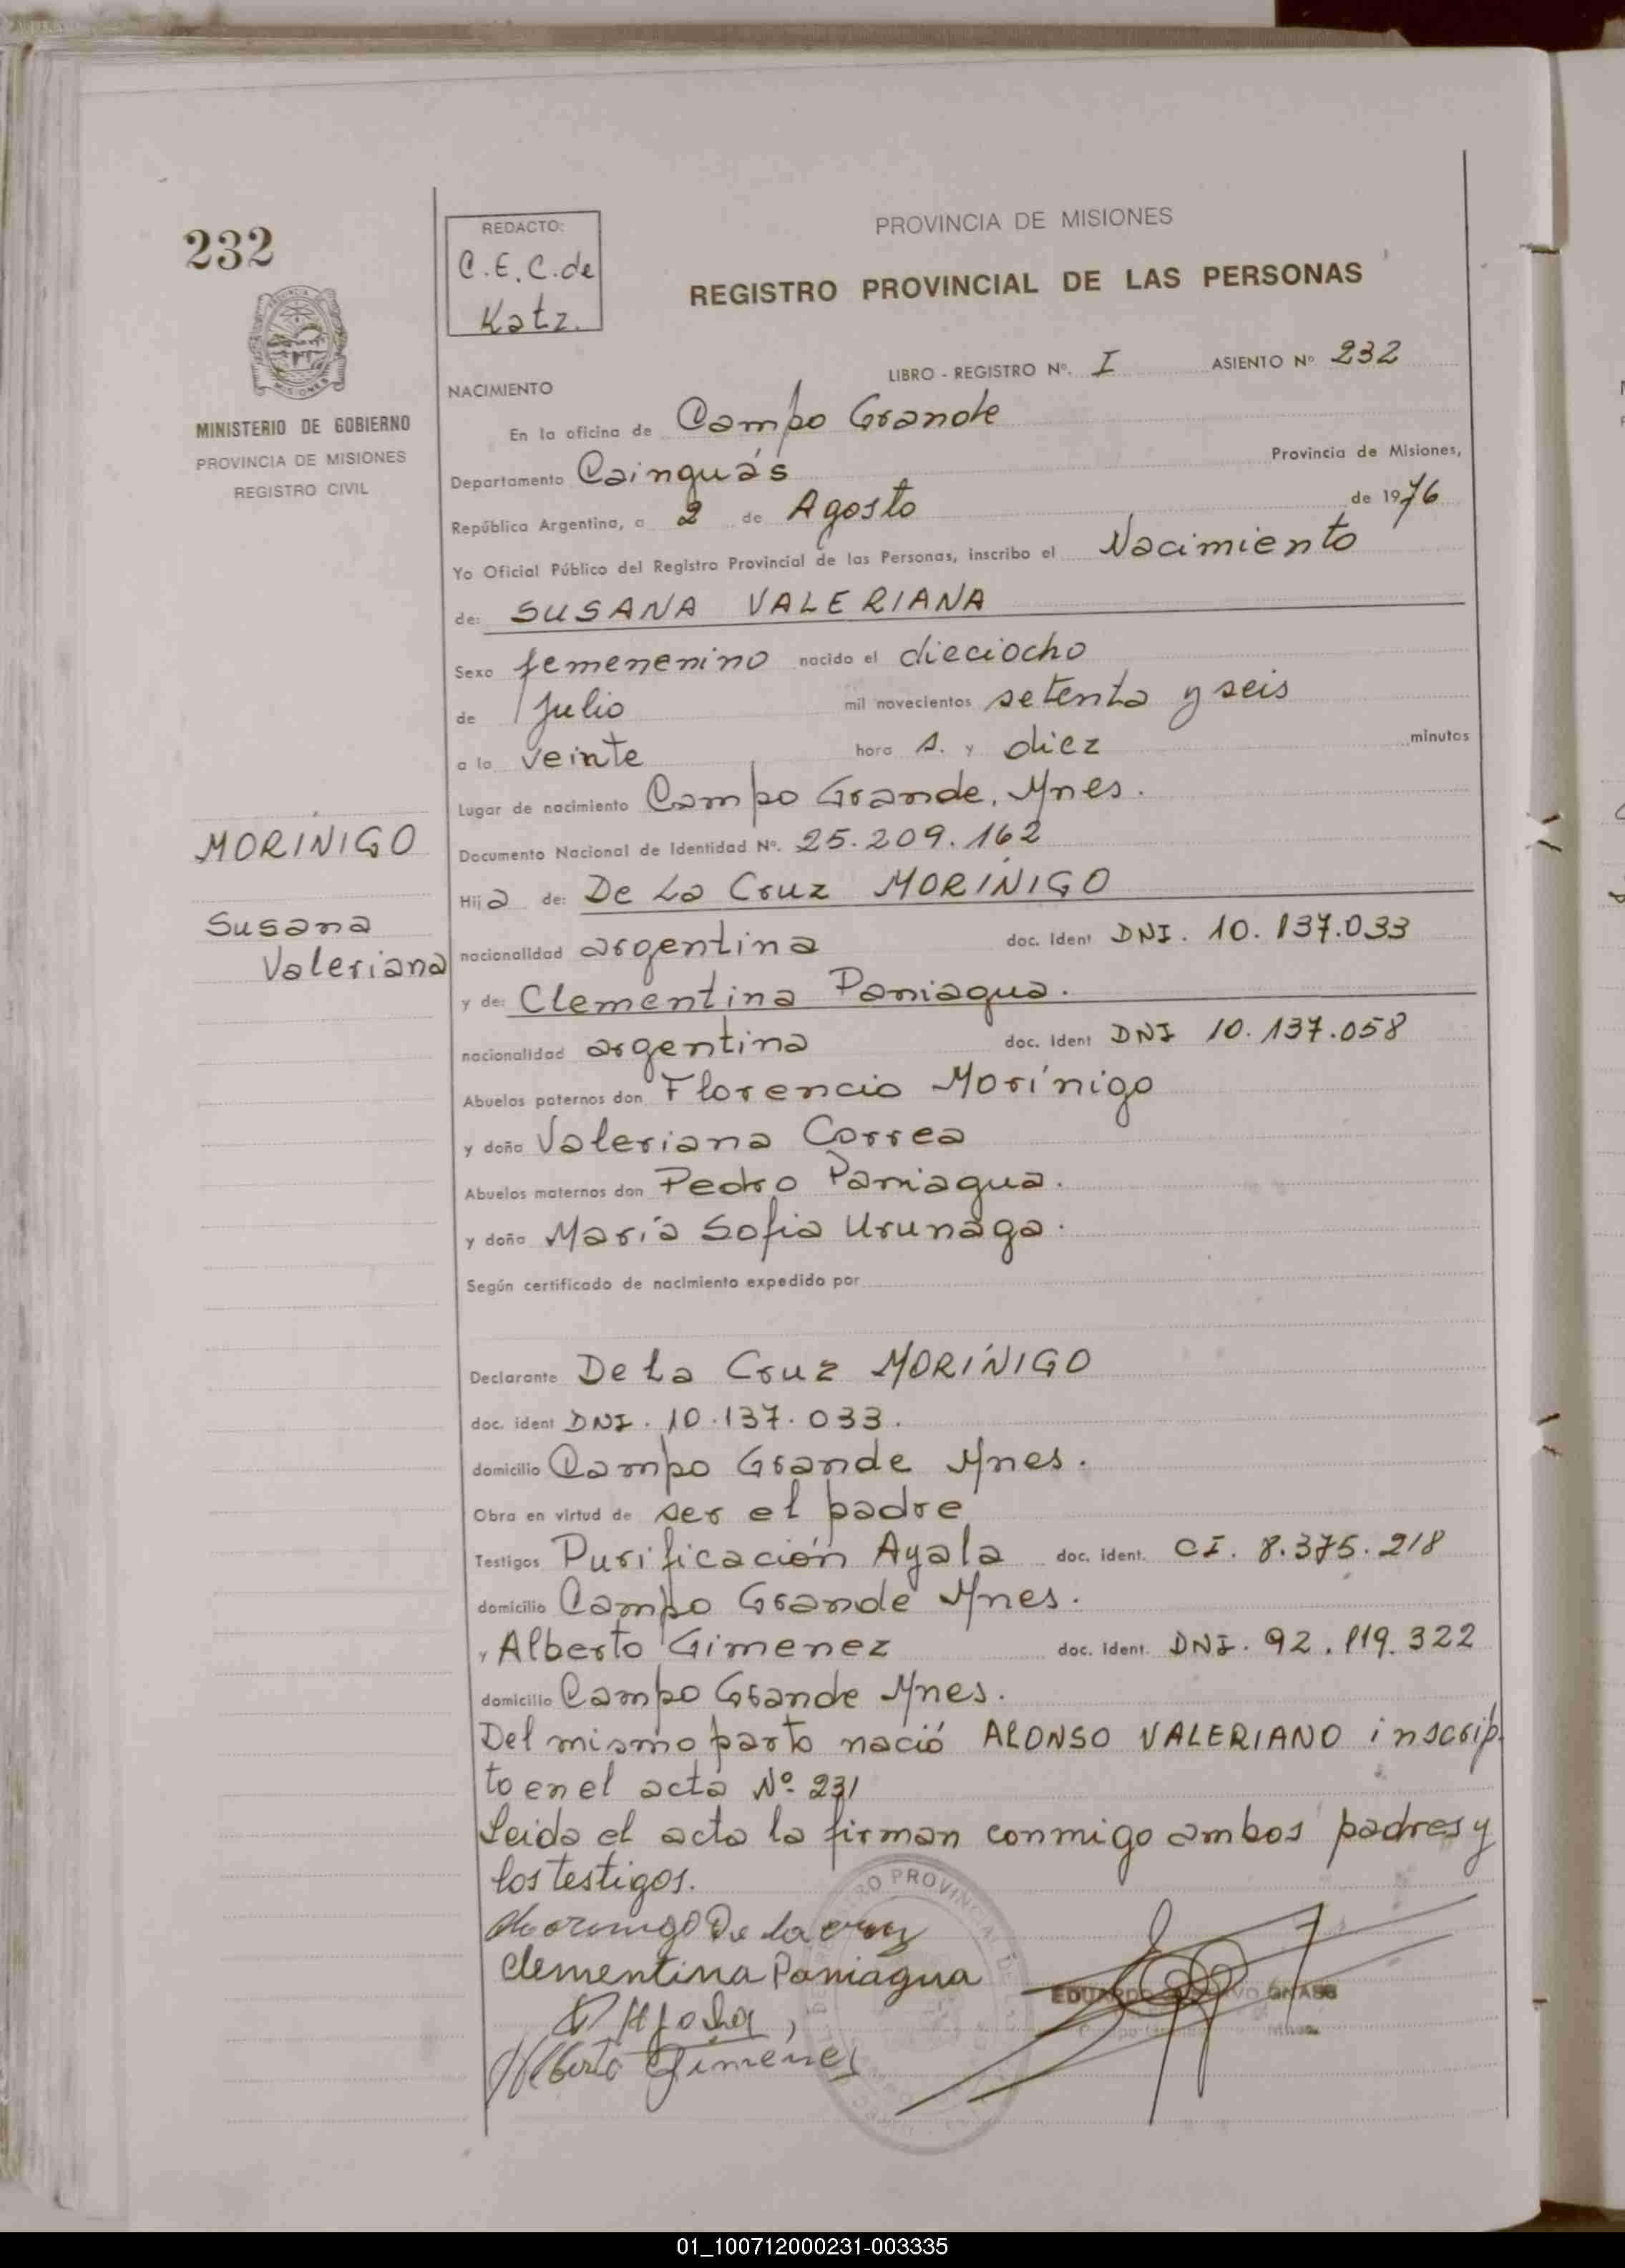 232
REDACTO:
C.E.C. de
Katz.
PROVINCIA DE MISIONES
REGISTRO PROVINCIAL DE LAS PERSONAS
MINISTERIO DE GOBIERNO
PROVINCIA DE MISIONES
REGISTRO CIVIL
LIBRO - REGISTRO Nº. I ASIENTO Nº 232
NACIMIENTO
En la oficina de Campo Grande
Departamento Cainguás Provincia de Misiones,
República Argentina, a 2 de Agosto de 1976
Yo Oficial Público del Registro Provincial de las Personas, inscribo el Nacimiento
de: SUSANA VALERIANA
Sexo femenenino nacido el dieciocho
de Julio mil novecientos setenta y seis
a la veinte hora s. y diez minutos
Lugar de nacimiento Campo Grande, Mnes.
MORÍNIGO
Susana
Valeriana
Documento Nacional de Identidad Nº. 25.209.162
Hija de: De La Cruz MORÍNIGO
nacionalidad argentina doc. Ident DNI. 10.137.033
y de: Clementina Paniagua.
nacionalidad argentina doc. Ident DNI 10.137.058
Abuelos paternos don Florencio Morínigo
y doña Valeriana Correa
Abuelos maternos don Pedro Paniagua.
y doña María Sofia Urunaga.
Según certificado de nacimiento expedido por
Declarante De La Cruz MORÍNIGO
doc. ident DNI. 10.137.033.
domicilio Campo Grande Mnes.
Obra en virtud de ser el padre
Testigos Purificación Ayala doc. ident. CI. 8.375.218
domicilio Campo Grande Mnes.
y Alberto Gimenez doc. Ident. DNI. 92.119.322
domicilio Campo Grande Mnes.
Del mismo parto nació ALONSO VALERIANO inscrip-
to en el acta Nº 231
Leida el acta la firman conmigo ambos padres y
los testigos.
Morinigo De la cruz
Clementina Paniagua
EDUARDO
Alberto Gimenez
01_100712000231-003335